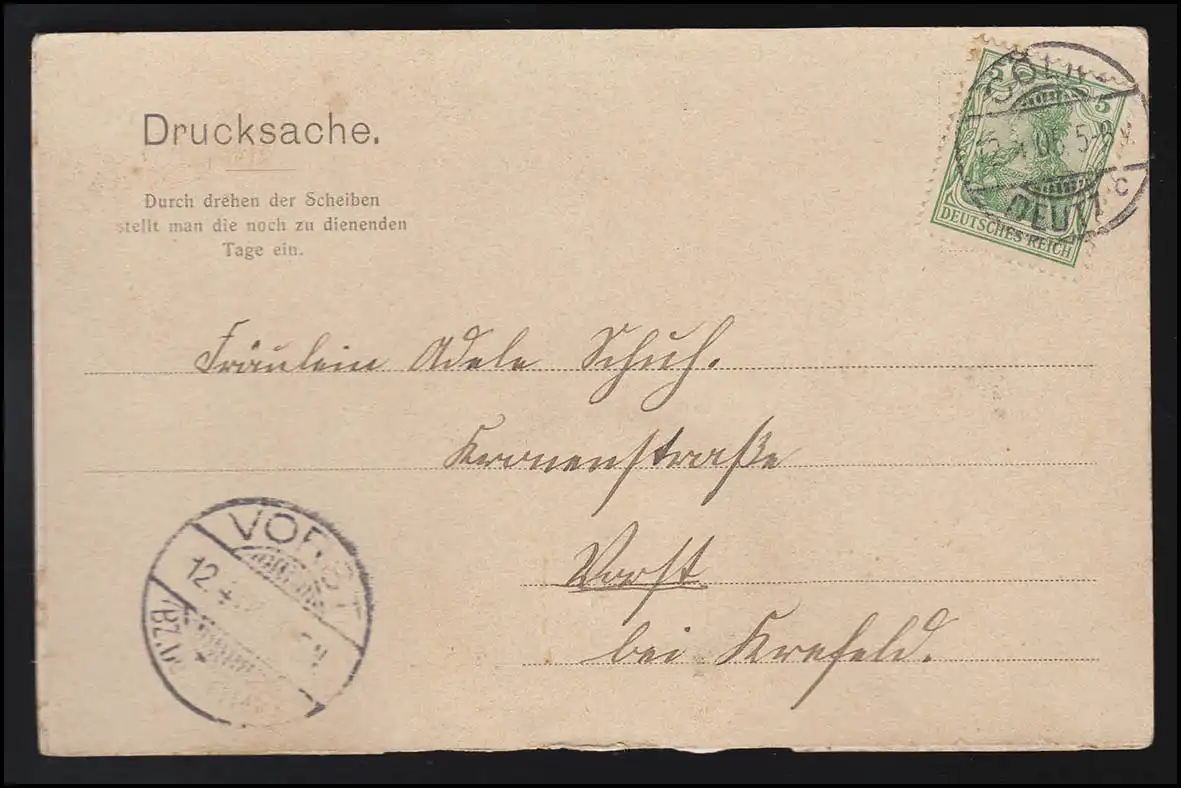 Drucksache.
Durch drehen der Scheiben
stellt man die noch zu dienenden
Tage ein.
5 5
DEUTSCHES REICH
CÖLN
5-8
DEUTZ
c
Fräulein Adele Schuh.
Kronenstraße
Vorst
bei Krefeld.
VORST
12